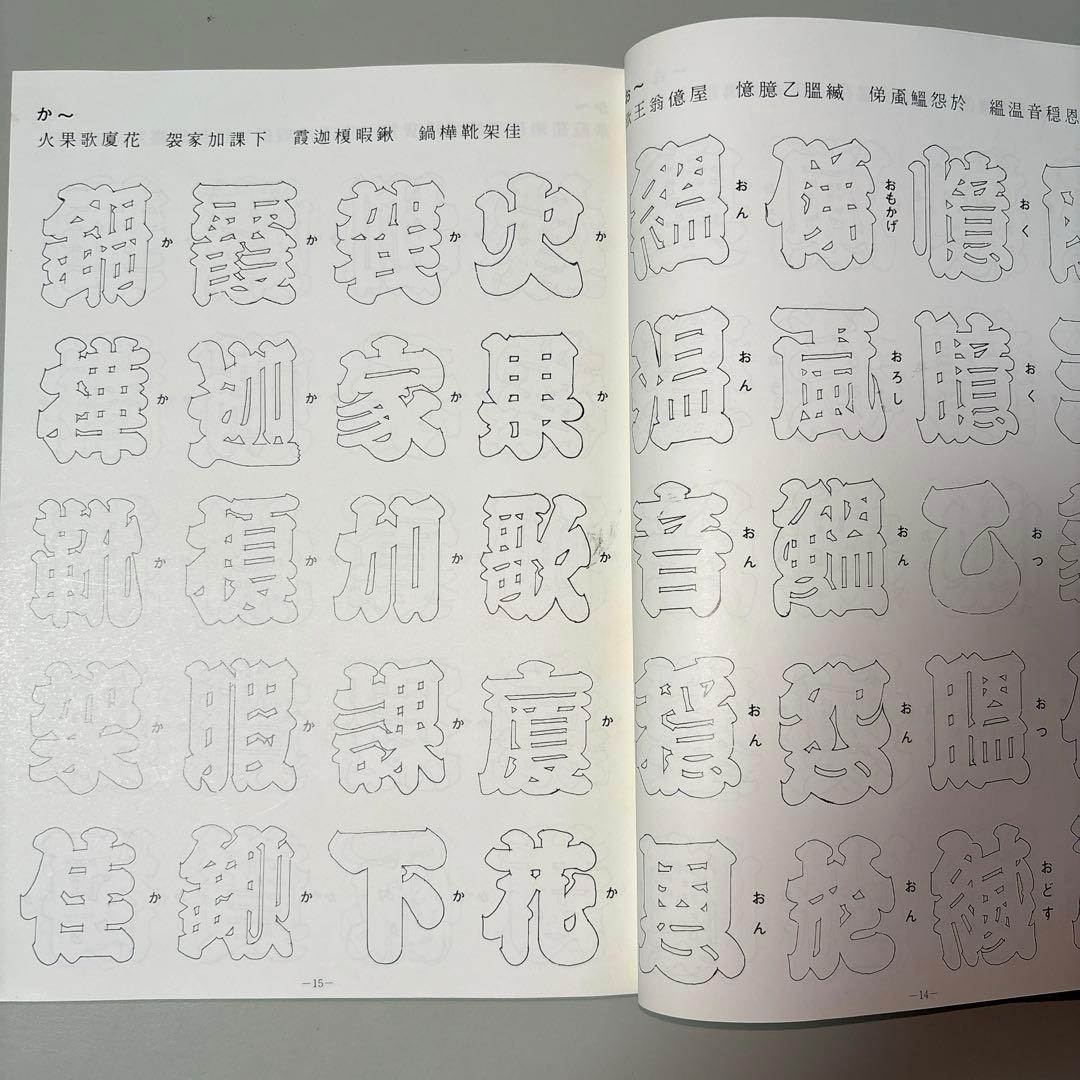 王翁億屋　憶臆乙膃縅　俤颪鰮怨於　縕温音穏恩
憶 おく
臆 おく
乙 おつ
膃 おつ
縅 おどす
俤 おもかげ
颪 おろし
鰮 おん
怨 おん
於 おん
縕 おん
温 おん
音 おん
穏 おん
恩 おん
―14―
か〜
火果歌廈花　袈家加課下　霞迦榎暇鍬　鍋樺靴架佳
火 か
果 か
歌 か
廈 か
花 か
袈 か
家 か
加 か
課 か
下 か
霞 か
迦 か
榎 か
暇 か
鍬 か
鍋 か
樺 か
靴 か
架 か
佳 か
―15―